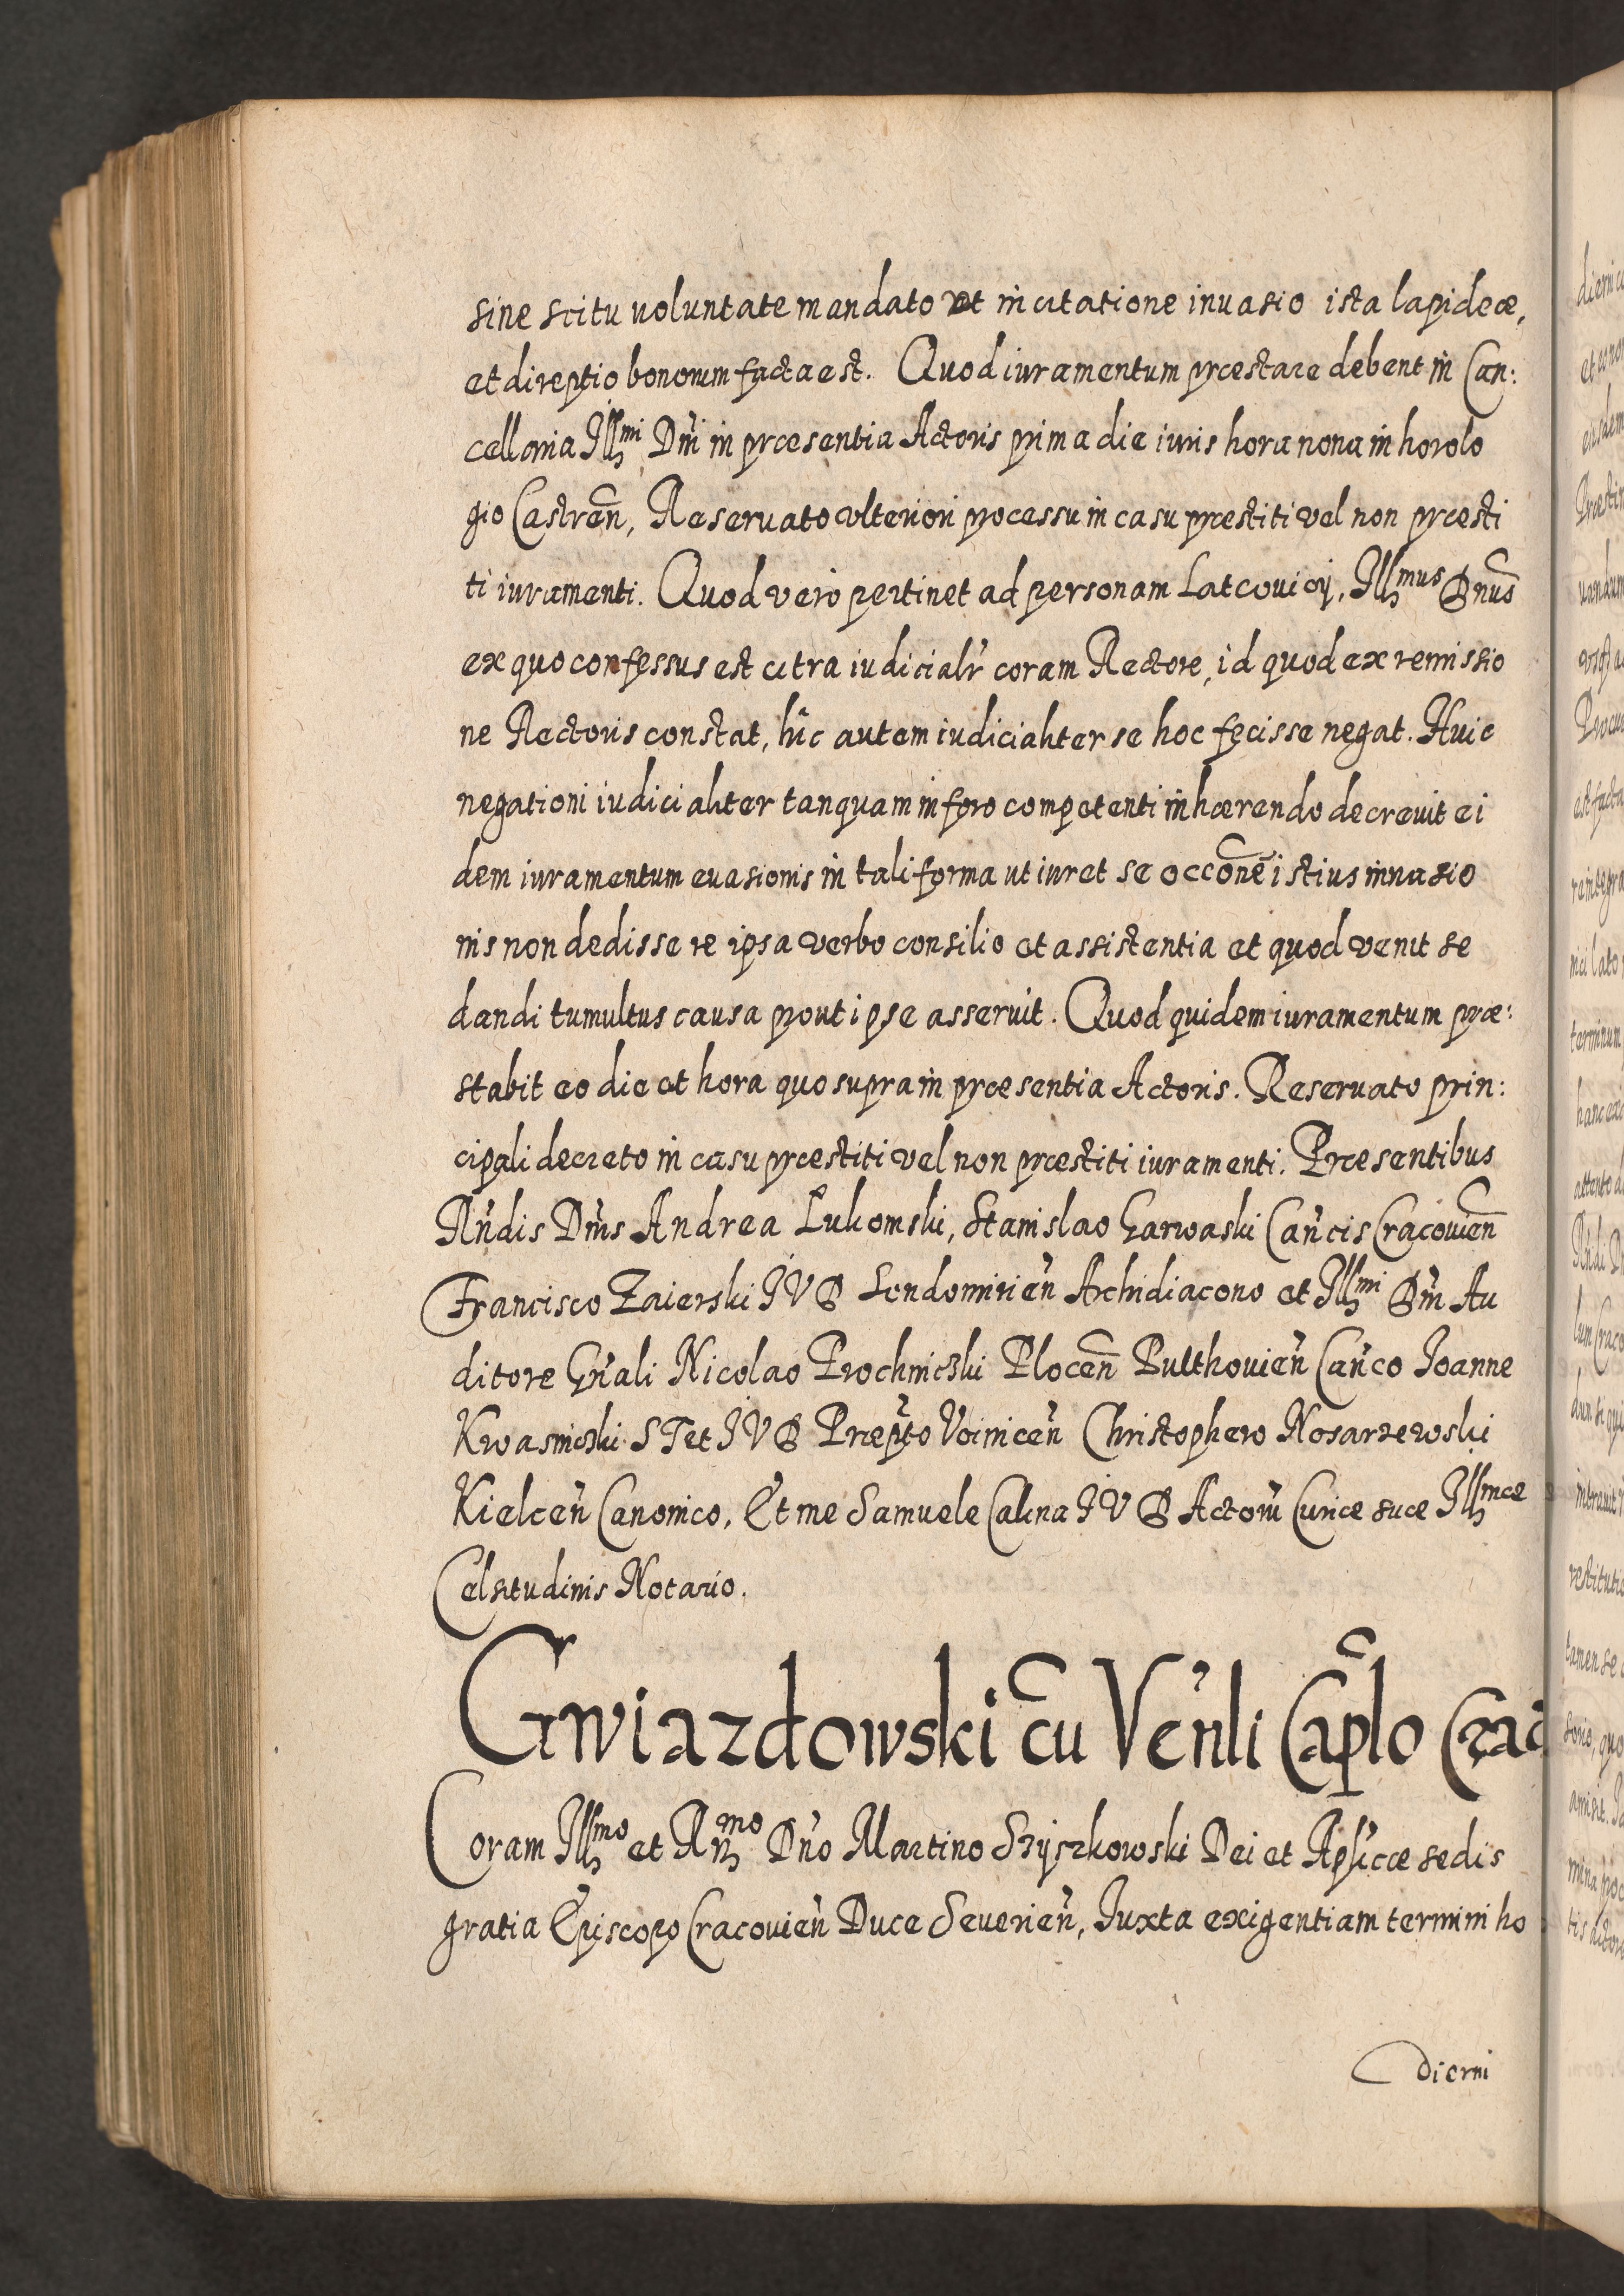 sine scitu voluntate mandato ut in citatione inuasio ista lapideæ,
et direptio bonorum facta est. Quod iuramentum præstare debent in Can:
cellaria Illmi Dni in præsentia Actoris prima die iuris hora nona in horolo
gio Castren, Reseruato vlteriori processu in casu præstiti vel non præsti
ti iuramenti. Quod vero pertinet ad personam Latcouicij, Illmus Dnus
ex quo confessus est citra iudicialr coram Rectore, id quod ex remissio
ne Rectoris constat, hic autem iudicialiter se hoc fecisse negat. Huic
negationi iudicialiter tanquam in foro competenti inhærendo decreuit ei
dem iuramentum euasionis in tali forma ut iuret se occone istius inuasio
nis non dedisse re ipsa verbo consilio et assistentia et quod venit se
dandi tumultus causa prout ipse asseruit. Quod quidem iuramentum præ:
stabit eo die et hora quo supra in præsentia Actoris. Reseruato prin:
cipali decreto in casu præstiti vel non præstiti iuramenti. Præsentibus
Rndis Dnis Andrea Lukomski, Stanislao Garwaski Cancis Cracouien
Francisco Zaierski IVD Sendomirien Archidiacono et Illmi Dni Au
ditore Gnali Nicolao Prochnicski Plocen Pulthouien Canco Ioanne
Kwasnicski S T et IVD Præpto Voinicen Christophero Nosarzewski
Kielcen Canonico, Et me Samuele Calina IVD Actoru Curiæ suæ Illmæ
Celsitudinis Notario.
Gwiazdowski cu Venli Caplo Crac
Coram Illmo et Rmo Dno Martino Szyszkowski Dei et Aplicæ sedis
gratia Episcopo Cracouien Duce Seuerien, Iuxta exigentiam termini ho
dierni